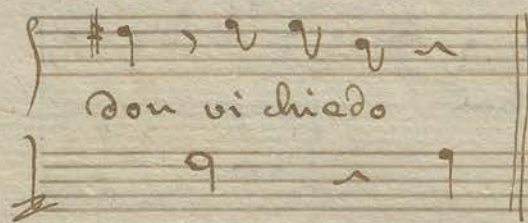 don vi chiedo